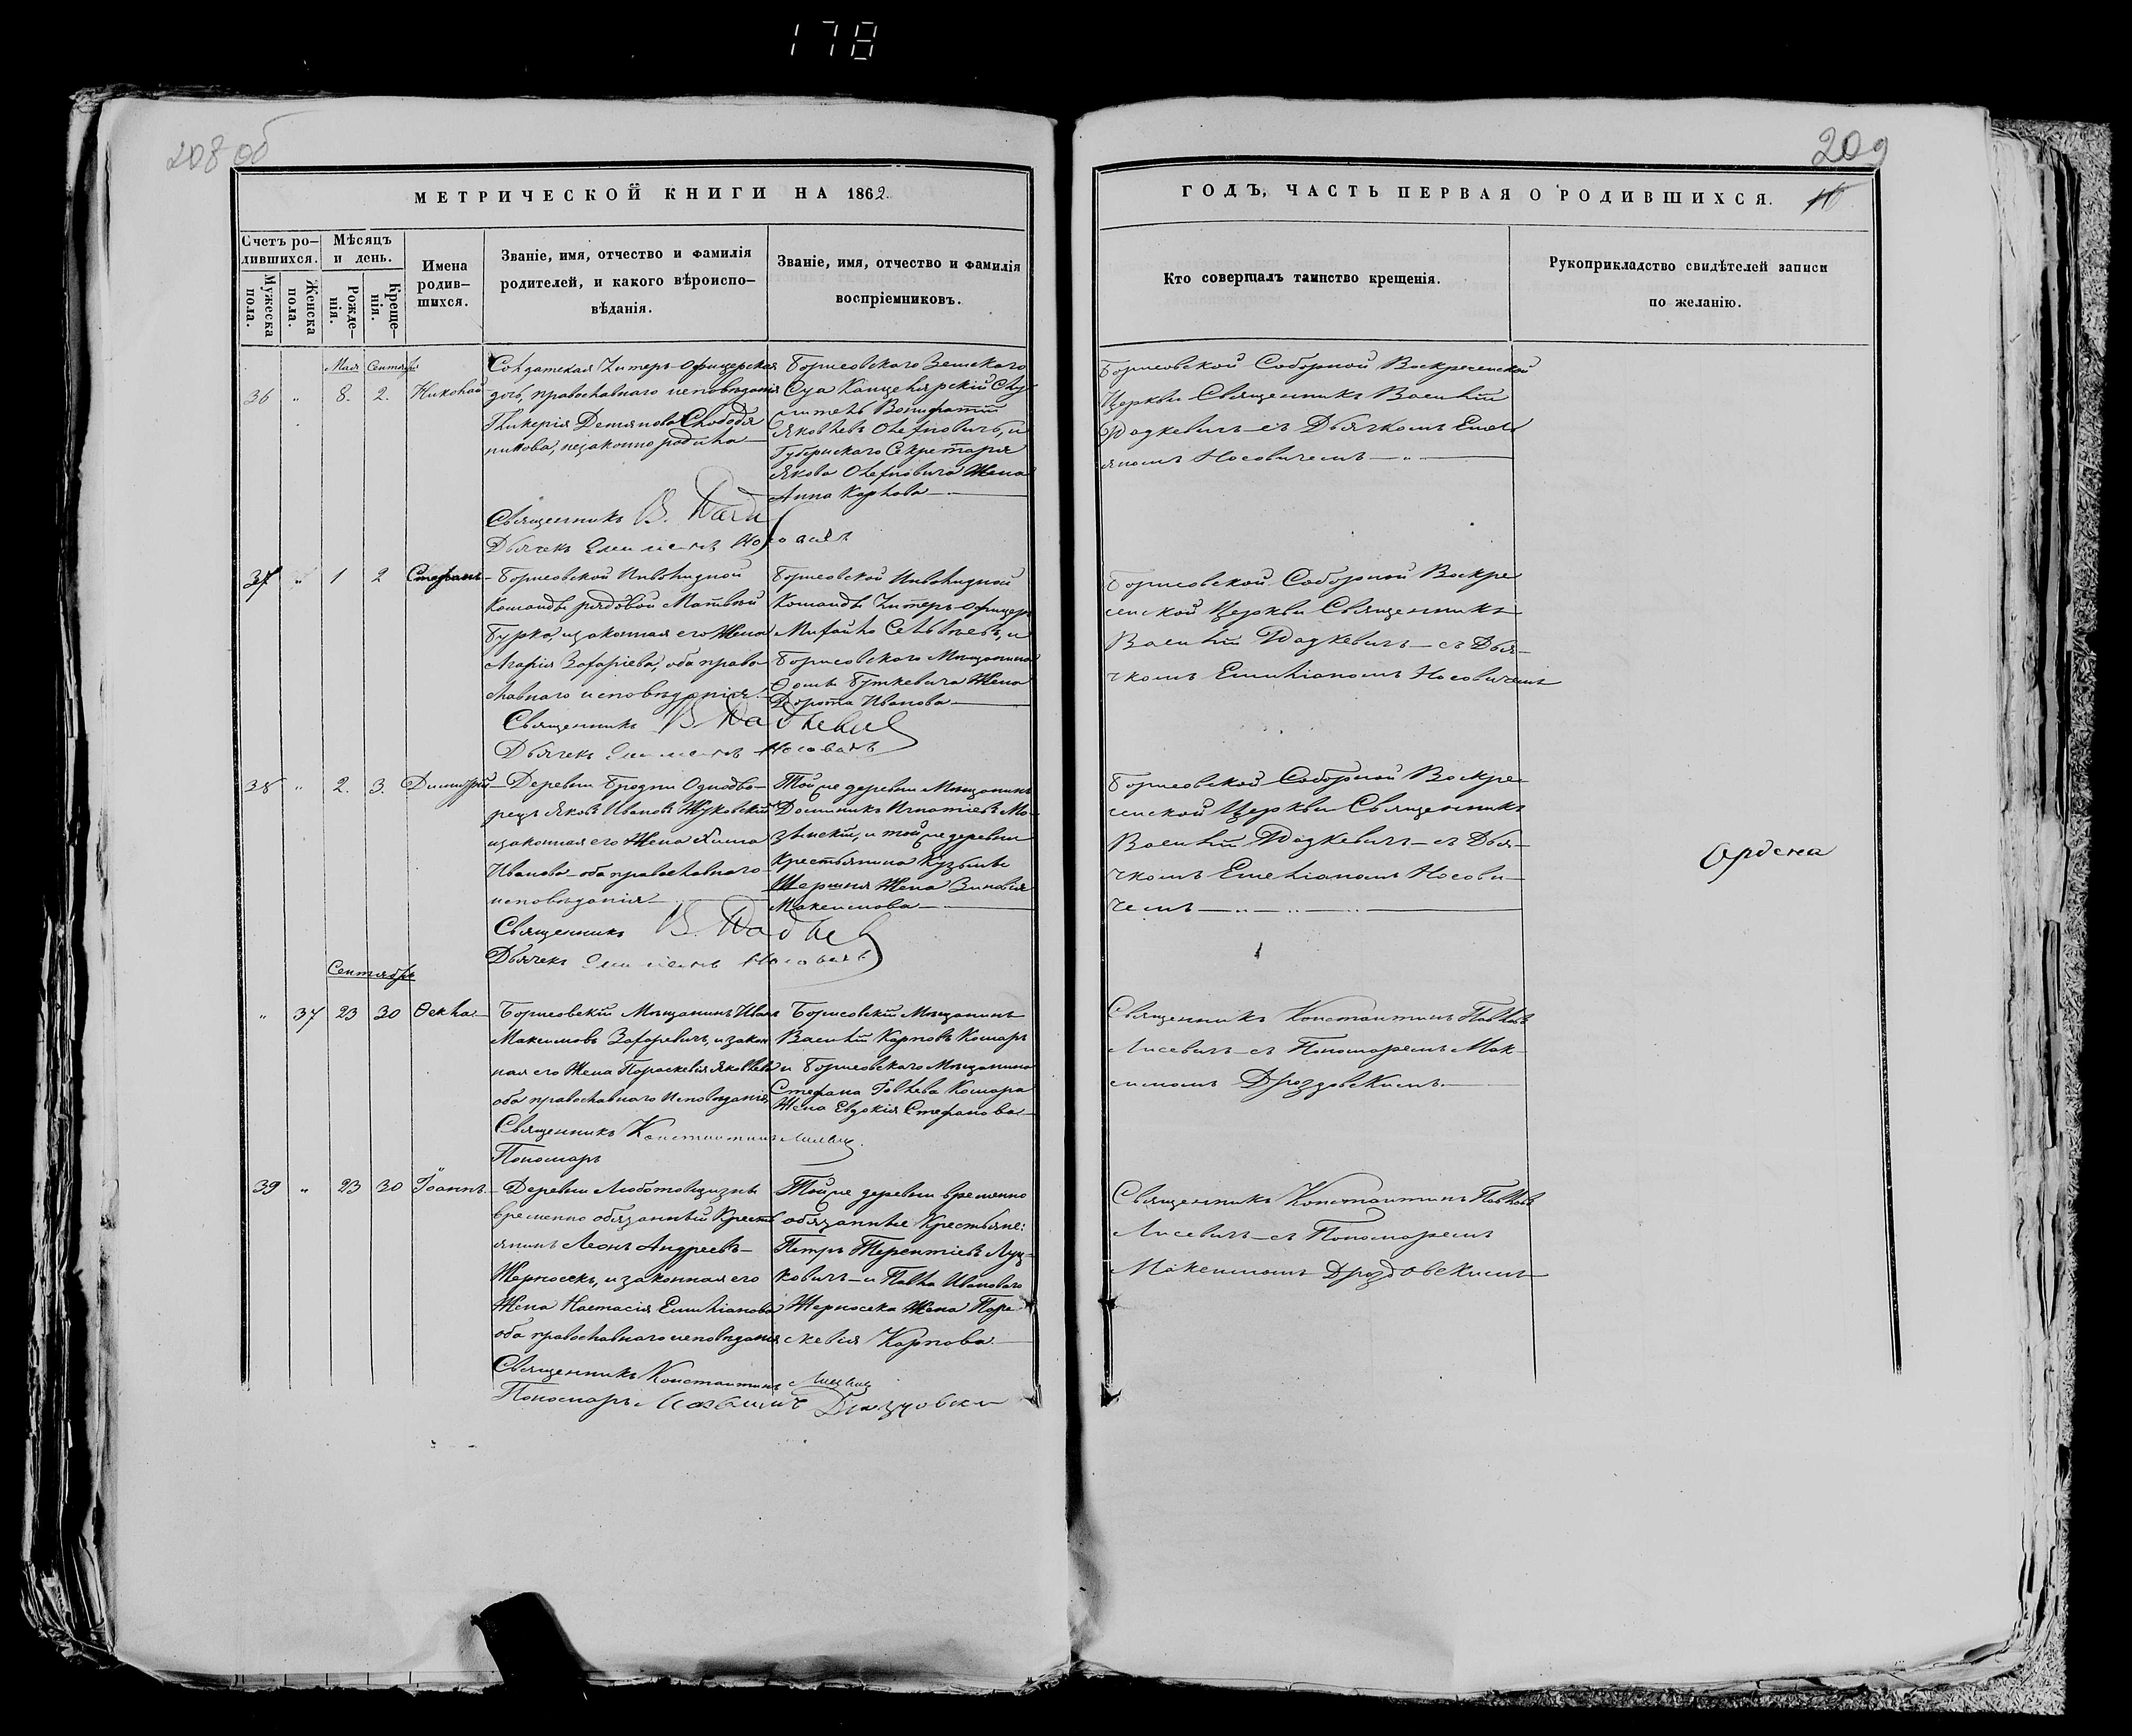 178
208 об
209
МЕТРИЧЕСКОЙ КНИГИ НА 1862.
Счетъ ро-
дившихся.
Мужеска
пола.
Женска
пола.
Мѣсяцъ
и день.
Рожде-
нія.
Креще-
нія.
Имена
родив-
шихся.
Званіе, имя, отчество и фамилія
родителей, и какого вѣроиспо-
вѣданія.
Званіе, имя, отчество и фамилія
воспріемниковъ.
ГОДЪ, ЧАСТЬ ПЕРВАЯ О РОДИВШИХСЯ.
Кто совершалъ таинство крещенія.
Рукоприкладство свидѣтелей записи
по желанію.
Мая Сентября
36 " 8. 2. Николай
Солдатская Унтеръ-офицерская
дочь, православнаго исповѣданія
Гликерія Демянова
никова, незаконнородила
Священникъ В.
Дьячекъ
Борисовскаго Земскаго
Суда Канцелярскій Слу-
житель Вонифатій
Яковлевъ и
Губернскаго Секретаря
Якова Жена
Анна Карлова
Борисовской Соборной Воскресенской
Церкви Священникъ Василій
съ Дьячкомъ Емел
яномъ Носовичемъ
37 " 1 2 Стефанъ
Борисовской Инвалидной
Команды рядовой Матвѣй
Бурка, изаконная его Жена
Марія Захаріева, оба право-
славнаго исповѣданія.
Священникъ В.
Дьячекъ
Борисовской Инвалидной
Команды Унтеръ-офицеръ
Михайло и
Борисовскаго Мѣщанина
Буткевича Жена
Дорота Иванова
Борисовской Соборной Воскре
сенской Церкви Священникъ
Василій съ Дья-
чкомъ Емиліаномъ Носовичемъ
38 " 2. 3. Димитрій
Деревни Бродни Однодво-
рецъ Яковъ Ивановъ Жуковскій
изаконная его Жена
Иванова оба православнаго
исповѣданія
Священникъ В.
Дьячекъ
Тойже деревни Мѣщанинъ
Доминикъ Игнатіевъ Мо-
и тойже деревни
Крестьянина Кузьмы
Жена Зиновія
Максимова
Борисовской Соборной Воскре
сенской Церкви Священникъ
Василій съ Дья-
чкомъ Емеліаномъ Носови-
чемъ
Сентябрь
" 37 23 30 Ѳекла
Борисовскій Мѣщанинъ Иванъ
Максимовъ Захаревичъ, изакон
ная его Жена Параскевія Яковлева
оба православнаго исповѣданія
Священникъ Константинъ
Пономарь
Борисовскій Мѣщанинъ
Василій Карповъ Комаръ
и Борисовскаго Мѣщанина
Стефана Комара
Жена Евдокія Стефанова
Священникъ Константинъ Павловъ
Лисевичъ съ Пономаремъ Мак-
симомъ Дроздовскимъ.
39 " 23 30 Іоаннъ
Деревни Любатовщизны
временно обязанный Крест
янинъ Леонъ Андреевъ
Жерносекъ, изаконная его
Жена Настасія Емиліанова
оба православнаго исповѣданія
Священникъ Константинъ
Пономарь
Тойже деревни временно
обязанные Крестьяне:
Петръ Терентіевъ Луц-
кевичъ и Павла Иванова
Жерносека Жена Пара
скевія Карпова
Священникъ Константинъ Павловъ
Лисевичъ съ Пономаремъ
Максимомъ Дроздовскимъ